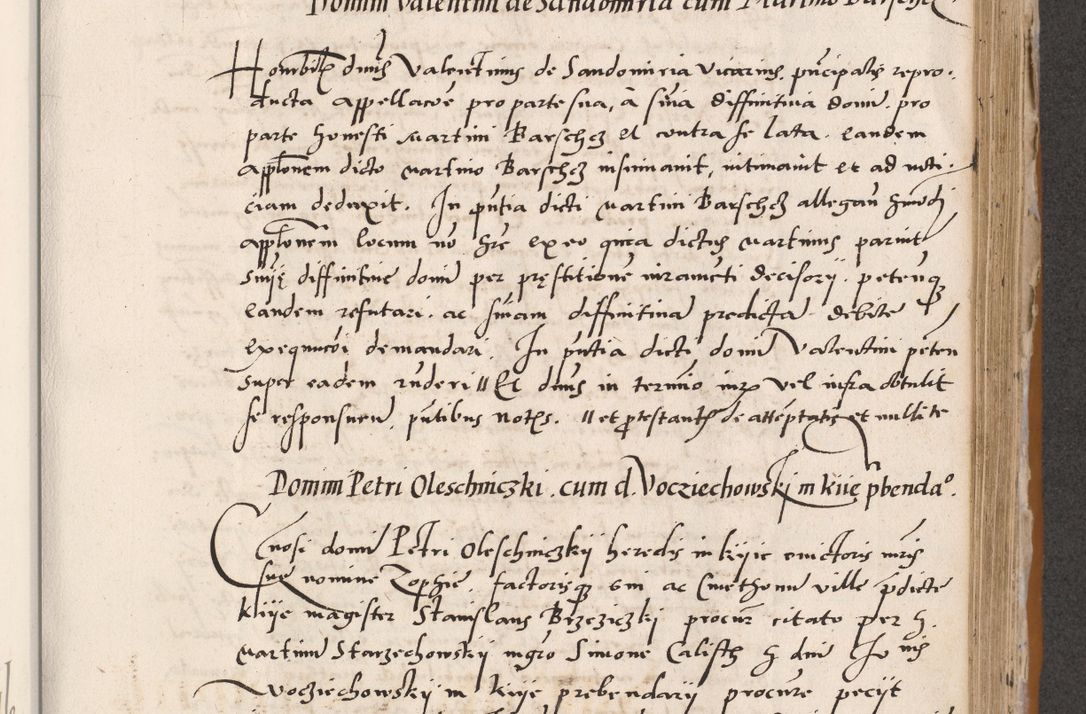 Domini Valentini de Sandomiria cum Martino Barschcz.
Honorabilis dnus Valentinus de Sandomiria Vicarius, principalis repro-
ducta appellacoe pro parte sua, a snia diffinitiva domi. pro
parte honesti Martini Barschcz et contra se lata. eandem
applonem dicto Martino Barschcz insinuavit, intimavit et ad noti-
ciam deduxit. In pntia dicti Martini Barschcz allegan hmodi
applonem locum no hre ex eo quia dictus Martinus paruit
snie diffinitive domi per prestitione iuramenti decisorii. petenq
eandem refutari. ac sniam diffinitiva predicta debite
exequucoi demandari. In pntia dicti domi Valentini peten
super eadem ruderi // Et dnus in termio iuxo vel infra obtulit
se responsuru, pntibus notis. // et protestante de atteptatis et nullite
Domini Petri Oleschniczki. cum d. Vocziechowski in kiie pbenda°.
Gnosi domi Petri Oleschniczkij heredis in kijie evictoris uxris
sue nomine Zophie. factorisq sui ac Cmethonu ville pdicte
kiije magister Stanislaus Brzeziczkj procur citato per h.
Martinu Starzechowskij mgro Simone Calisth h dni Io nis
Vocziechowskij in kiije prebendarij procure pecijt